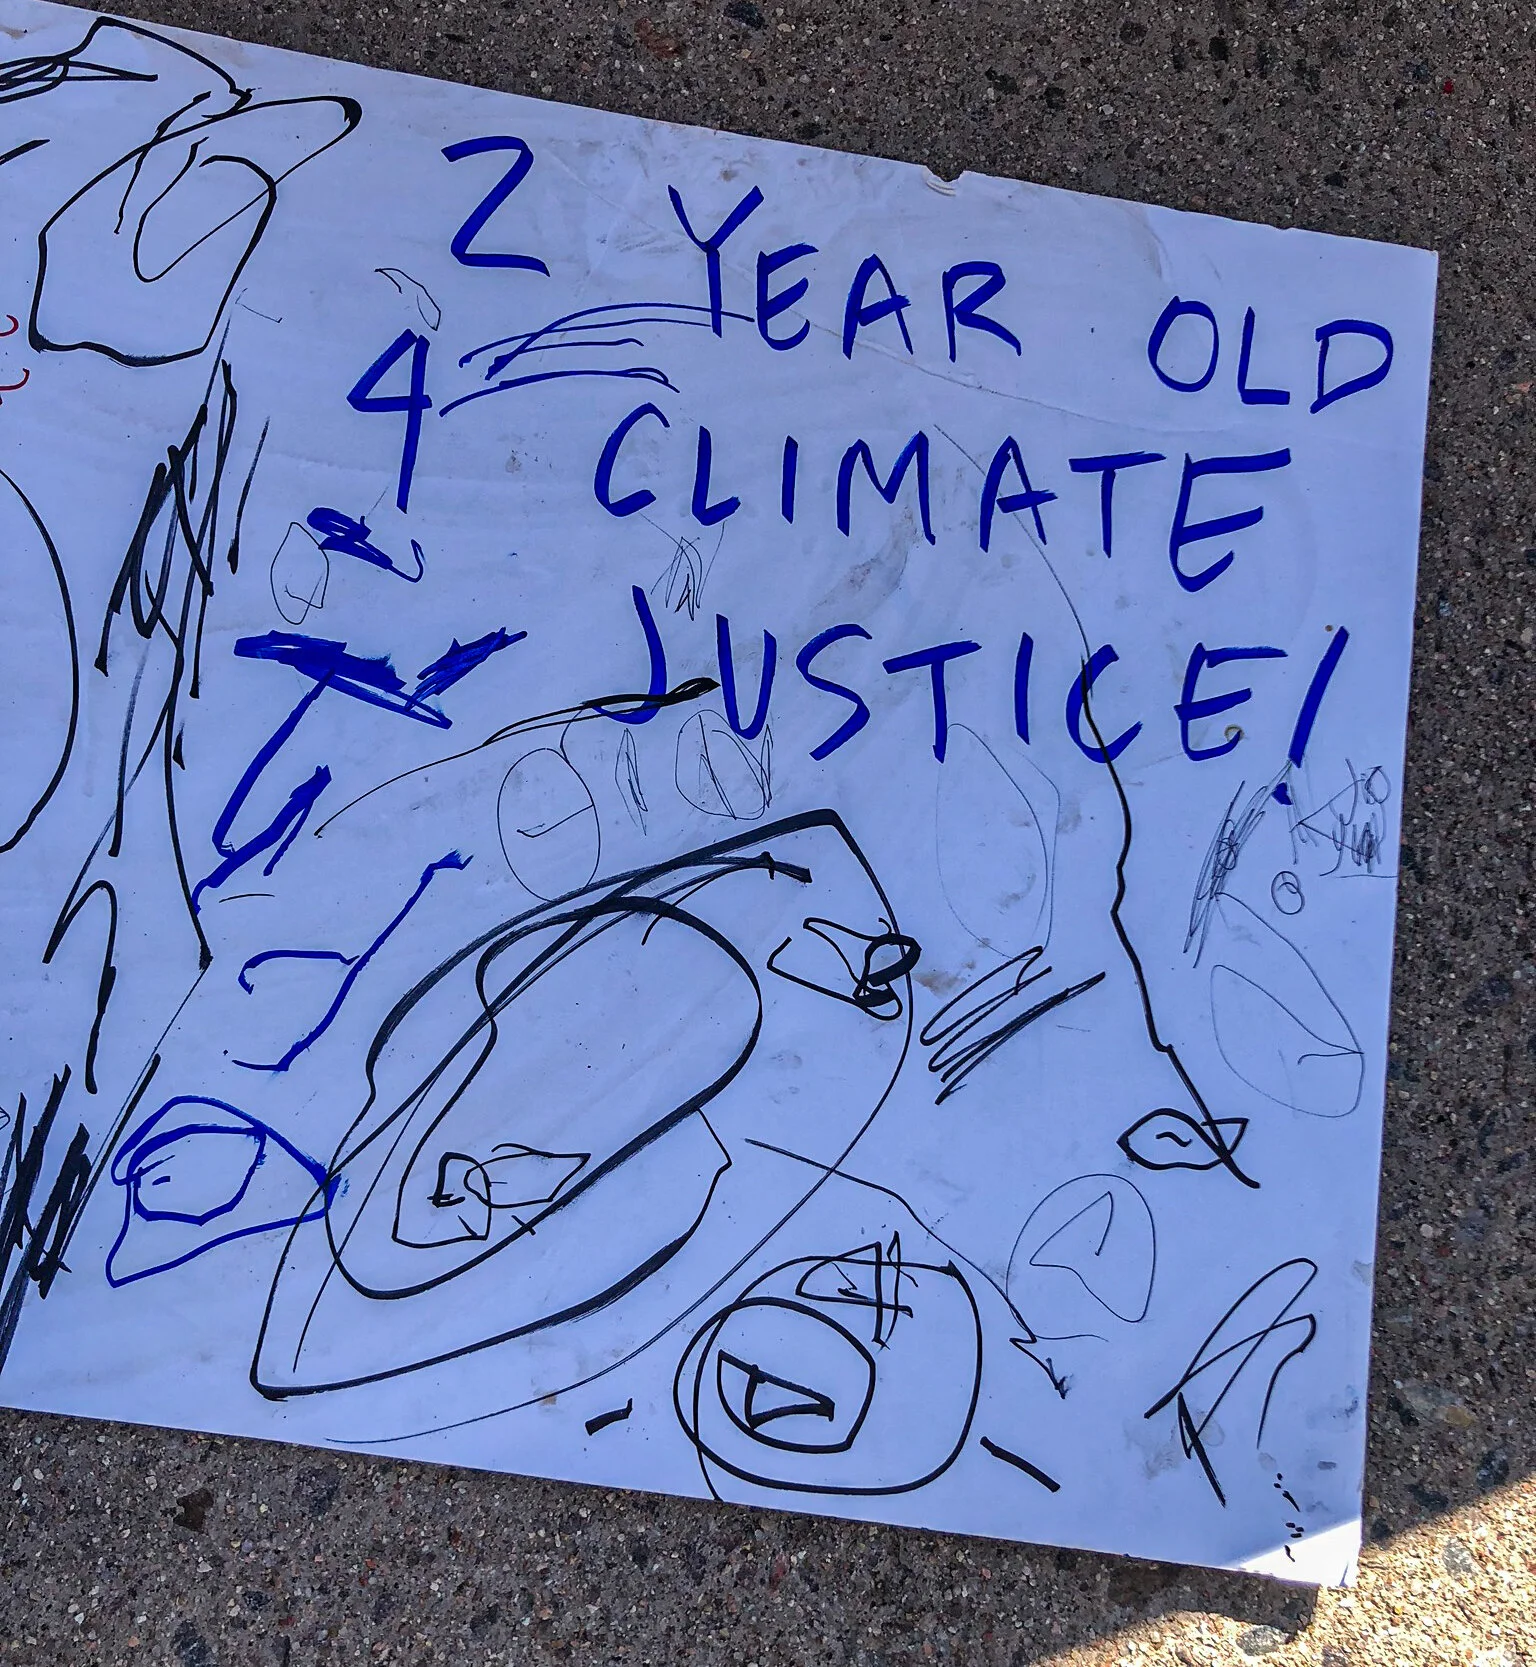 2 YEAR OLD
4 CLIMATE
JUSTICE!